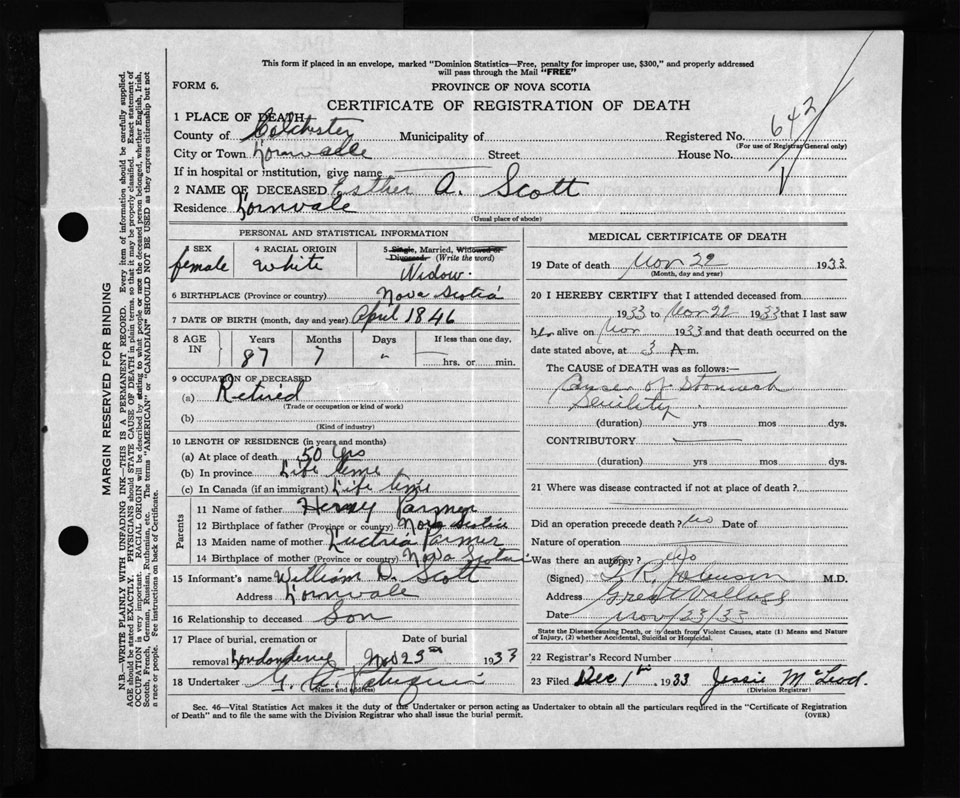 This form if placed in an envelope, marked "Dominion Statistics—Free, penalty for improper use, $300," and properly addressed
will pass through the Mail "FREE"
FORM 6.
PROVINCE OF NOVA SCOTIA
CERTIFICATE OF REGISTRATION OF DEATH
1 PLACE OF DEATH
County of Colchester Municipality of Registered No. 642
(For use of Registrar General only)
City or Town Lornvale Street House No.
If in hospital or institution, give name
2 NAME OF DECEASED Esther A. Scott
Residence Lornvale
(Usual place of abode)
PERSONAL AND STATISTICAL INFORMATION
3 SEX 4 RACIAL ORIGIN 5 Single, Married, Widowed or
Divorced. (Write the word)
female white Widow.
6 BIRTHPLACE (Province or country) Nova Scotia
7 DATE OF BIRTH (month, day and year) April 1846
8 AGE IN Years Months Days If less than one day,
87 7 " hrs. or min.
9 OCCUPATION OF DECEASED
(a) Retired
(Trade or occupation or kind of work)
(b)
(Kind of industry)
10 LENGTH OF RESIDENCE (in years and months)
(a) At place of death 50 yrs
(b) In province Life time
(c) In Canada (if an immigrant) Life time
Parents
11 Name of father Henry Parmer
12 Birthplace of father (Province or country) Nova Scotia
13 Maiden name of mother Parmer
14 Birthplace of mother (Province or country) Nova Scotia
15 Informant's name William D. Scott
Address Lornvale
16 Relationship to deceased Son
17 Place of burial, cremation or Date of burial
removal Londonderry Nov 25th 1933
18 Undertaker G.
(Name and address)
MEDICAL CERTIFICATE OF DEATH
19 Date of death Nov 22 1933
(Month, day and year)
20 I HEREBY CERTIFY that I attended deceased from
1933 to Nov 22 1933 that I last saw
her alive on Nov 1933 and that death occurred on
date stated above, at 3 A m.
The CAUSE of DEATH was as follows:—
Cancer of Stomach
Senility
(duration) yrs mos dys.
CONTRIBUTORY
(duration) yrs mos dys.
21 Where was disease contracted if not at place of death?
Did an operation precede death? No Date of
Nature of operation
Was there an autopsy? No
(Signed) R. Johnson M.D.
Address Great Village
Date Nov/23/33
State the Disease causing Death, or in death from Violent Causes, state (1) Means and Nature
of Injury, (2) whether Accidental, Suicidal or Homicidal.
22 Registrar's Record Number
23 Filed Dec 1st 1933 Jessie McLeod
(Division Registrar)
Sec. 46—Vital Statistics Act makes it the duty of the Undertaker or person acting as Undertaker to obtain all the particulars required in the "Certificate of Registration
of Death" and to file the same with the Division Registrar who shall issue the burial permit.
(OVER)
MARGIN RESERVED FOR BINDING
N.B.—WRITE PLAINLY WITH UNFADING INK—THIS IS A PERMANENT RECORD. Every item of information should be carefully supplied.
AGE should be stated EXACTLY. PHYSICIANS should STATE CAUSE OF DEATH in plain terms, so that it may be properly classified. Exact statement of
OCCUPATION is very important. RACIAL ORIGIN will be described by stating to what people or race the deceased person belonged, whether English, Irish,
Scotch, French, German, Russian, Ruthenian, etc. The terms "AMERICAN" or "CANADIAN" SHOULD NOT BE USED as they express citizenship but not
a race or people. See instructions on back of Certificate.